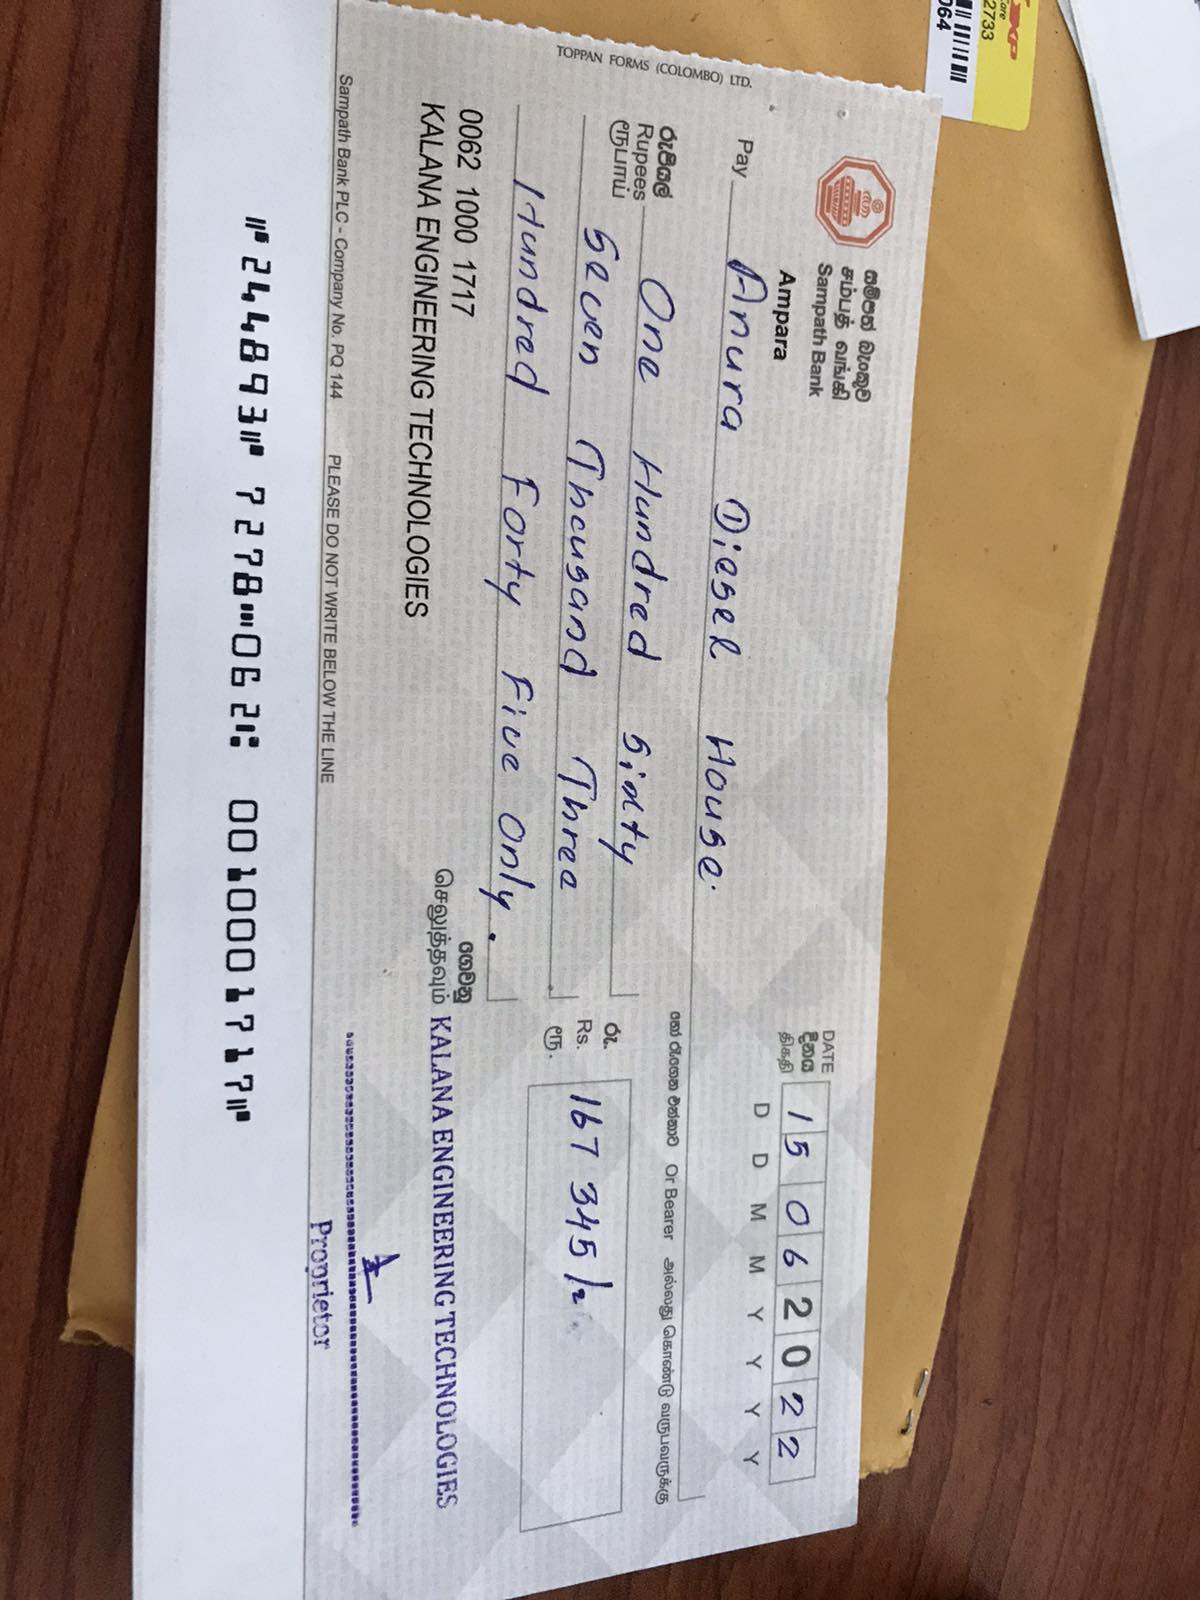 TOPPAN FORMS (COLOMBO) LTD.
සම්පත් බැංකුව
சம்பத் வங்கி
Sampath Bank
Ampara
DATE
දිනය
திகதி
15062022
D D M M Y Y Y Y
Pay Anura Diesel House.
හෝ රැගෙන එන්නාට Or Bearer அல்லது கொண்டு வருபவருக்கு
රුපියල්
Rupees One Hundred Sixty
ரூபாய்
Seven Thousand Three
Hundred Forty Five Only.
රු.
Rs. 167 345/=
ரூ.
0062 1000 1717
KALANA ENGINEERING TECHNOLOGIES
ගෙවනු
செலுத்தவும் KALANA ENGINEERING TECHNOLOGIES
Proprietor
Sampath Bank PLC - Company No. PQ 144 PLEASE DO NOT WRITE BELOW THE LINE
⑈244893⑈ 7278⑉062⑆ 0010001717⑈
2733
064